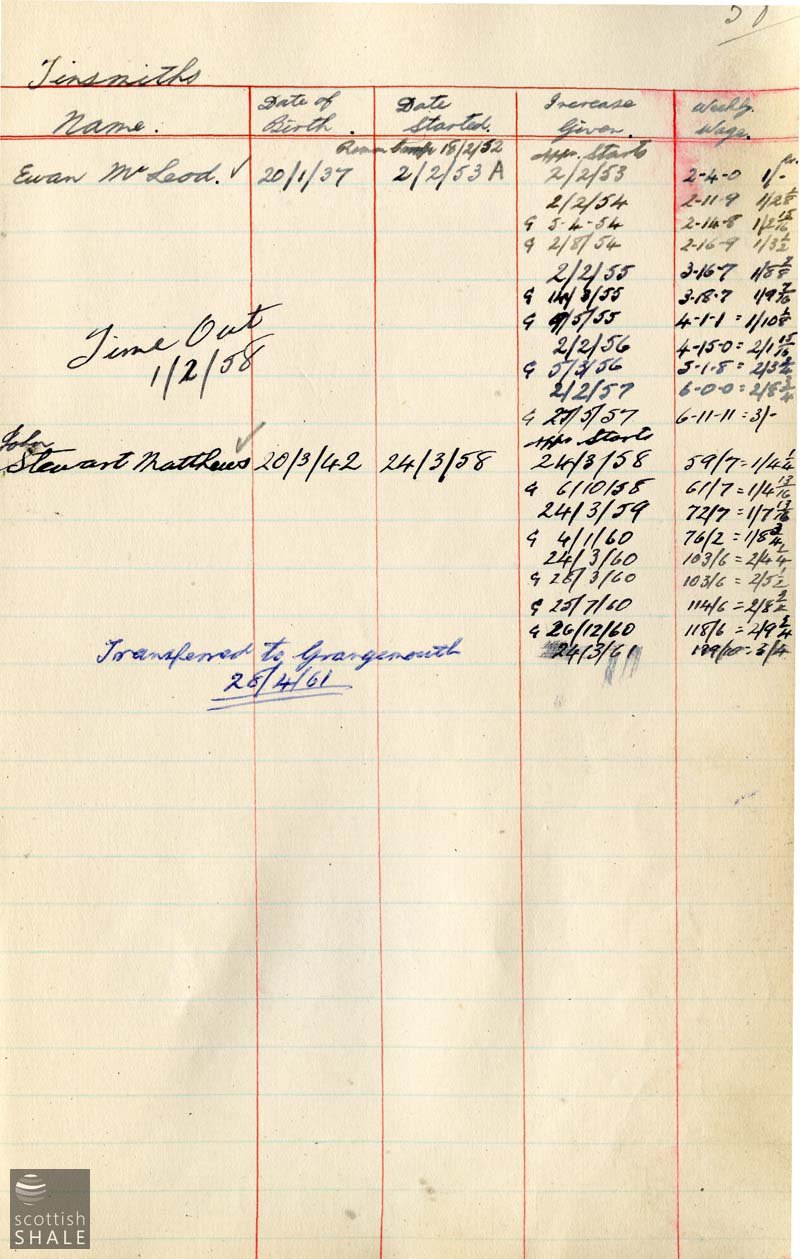 Tinsmiths
Name. Date of Birth. Date Started. Increase Given. Weekly Wage.
18/2/52 App. Starts
Ewan McLeod. ✓ 20/1/37 2/2/53 A 2/2/53 2-4-0 1/-
2/2/54 2-11-9 1/2 1/8
G 5-4-54 2-14-8 1/2 15/16
G 2/8/54 2-16-9 1/3 1/2
2/2/55 3-16-7 1/8 7/8
G 14/3/55 3-18-7 1/9 7/16
G 9/5/55 4-1-1 = 1/10 1/8
Time Out 2/2/56 4-15-0 = 2/1 15/16
1/2/58 G 5/3/56 5-1-8 = 2/3 3/4
2/2/57 6-0-0 = 2/8 3/4
G 27/5/57 6-11-11 = 3/-
John App. Starts
Stewart Matthews ✓ 20/3/42 24/3/58 24/3/58 59/7 = 1/4 1/4
G 6/10/58 61/7 = 1/4 13/16
24/3/59 72/7 = 1/7 13/16
G 4/1/60 76/2 = 1/8 3/4
24/3/60 103/6 = 2/4
G 28/3/60 103/6 = 2/5 1/2
G 25/7/60 114/6 = 2/8
G 26/12/60 118/6 = 2/9 3/4
Transferred to Grangemouth 24/3/61
28/4/61
scottish
SHALE